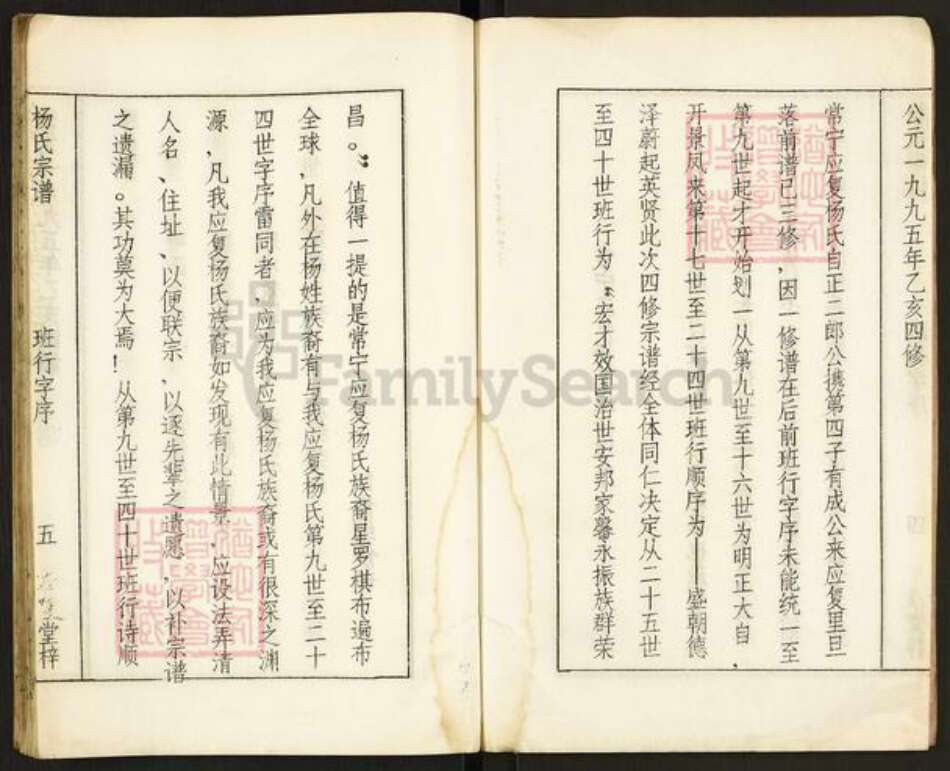 公元一九九五年乙亥四修
常宁应复杨氏自正二郎公携第四子有成公来应复里旦
落前谱已三修,因一修谱在后前班行字序未能统一至
第九世起才开始划一从第九世至十六世为明正大自,
开景凤来第十七世至二十四世班行顺序为——盛朝德
泽蔚起英贤此次四修宗谱经全体同仁决定从二十五世
至四十世班行为“宏才效国治世安邦家馨永振族群荣
昌。”值得一提的是常宁应复杨氏族裔星罗棋布遍布
全球,凡外在杨姓族裔有与我应复杨氏第九世至二十
四世字序雷同者,应为我应复杨氏族裔或有很深之渊
源,凡我应复杨氏族裔如发现有此情景,应设法弄清
人名、住址、以便联宗,以逐先辈之遗愿,以补宗谱
之遗漏。其功莫为大焉!从第九世至四十世班行诗顺
杨氏宗谱 班行字序 五 堂梓
FamilySearch